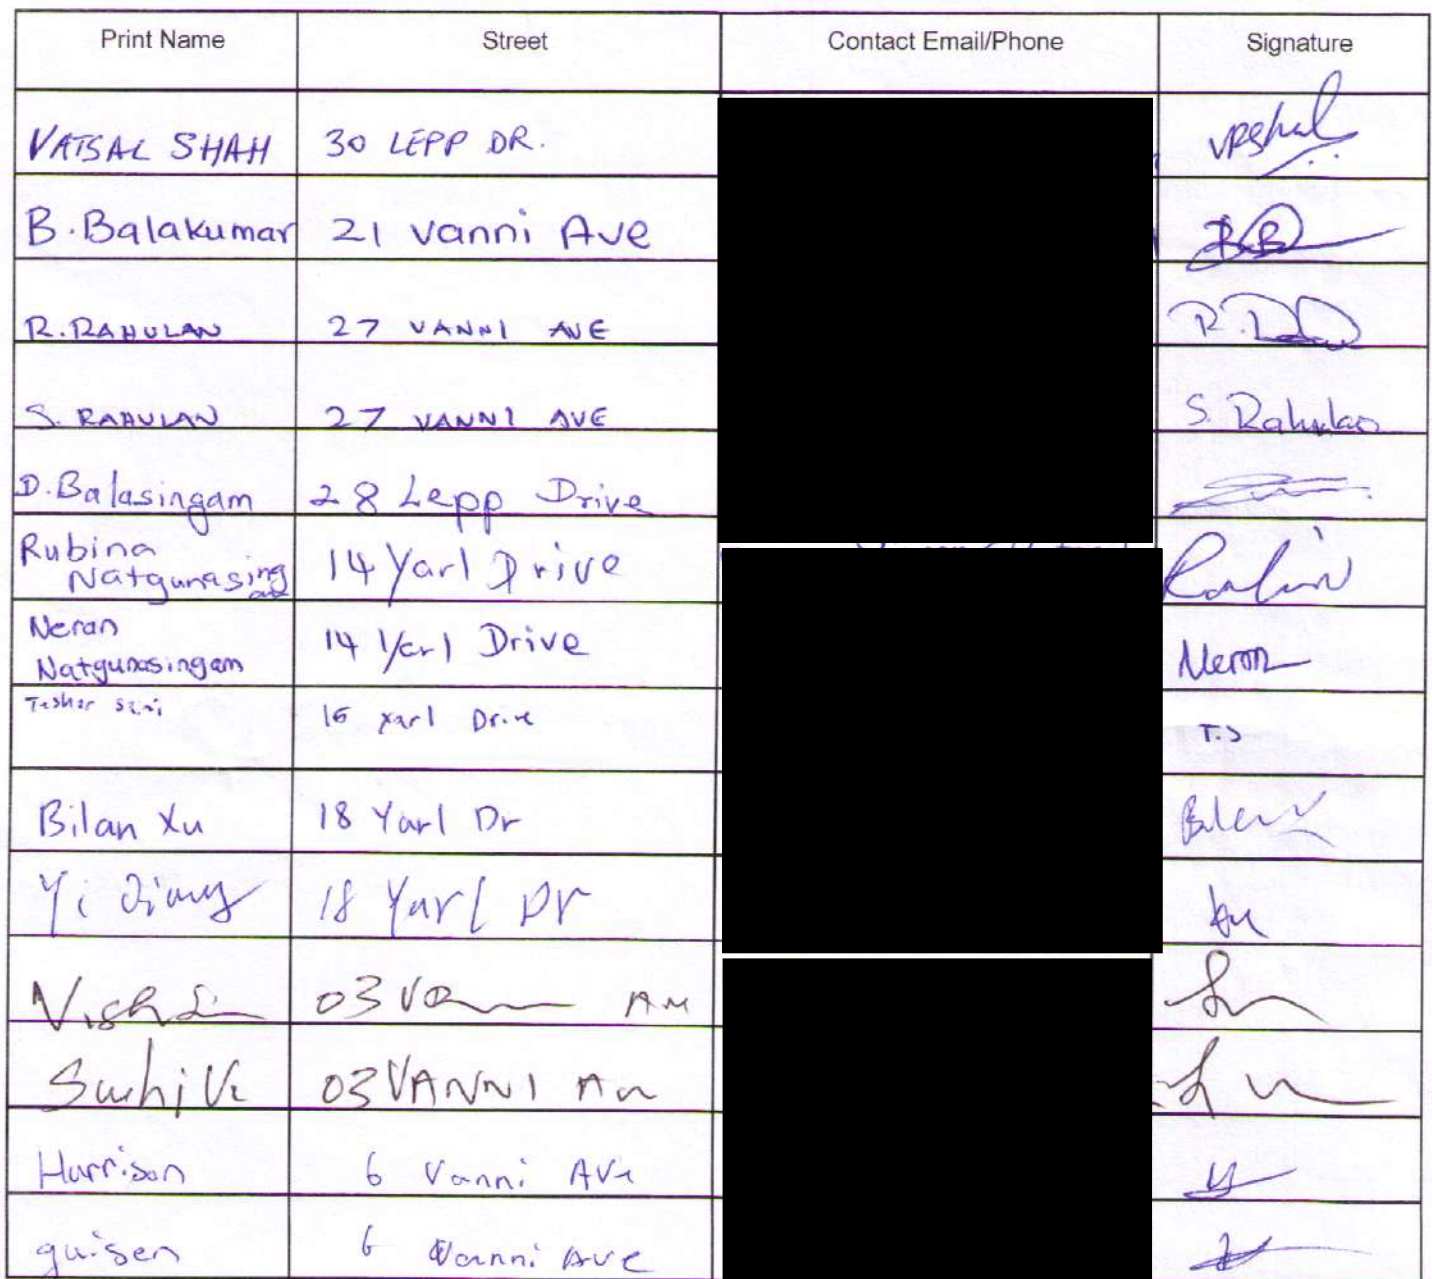 Print Name Street Contact Email/Phone Signature
VATSAL SHAH 30 LEPP DR.
B. Balakumar 21 Vanni Ave BB
R. RAHULAN 27 VANNI AVE R.
S. RAHULAN 27 VANNI AVE S. Rahulan
D. Balasingam 28 Lepp Drive
Rubina
Natgunasing
am 14 Yarl Drive
Neran
Natgunasingam 14 Yarl Drive Neran
16 Yarl Drive T.S
Bilan Xu 18 Yarl Dr
Yi 18 Yarl Dr
03
03 VANNI
Harrison 6 Vanni AVe
guisen 6 Vanni Ave